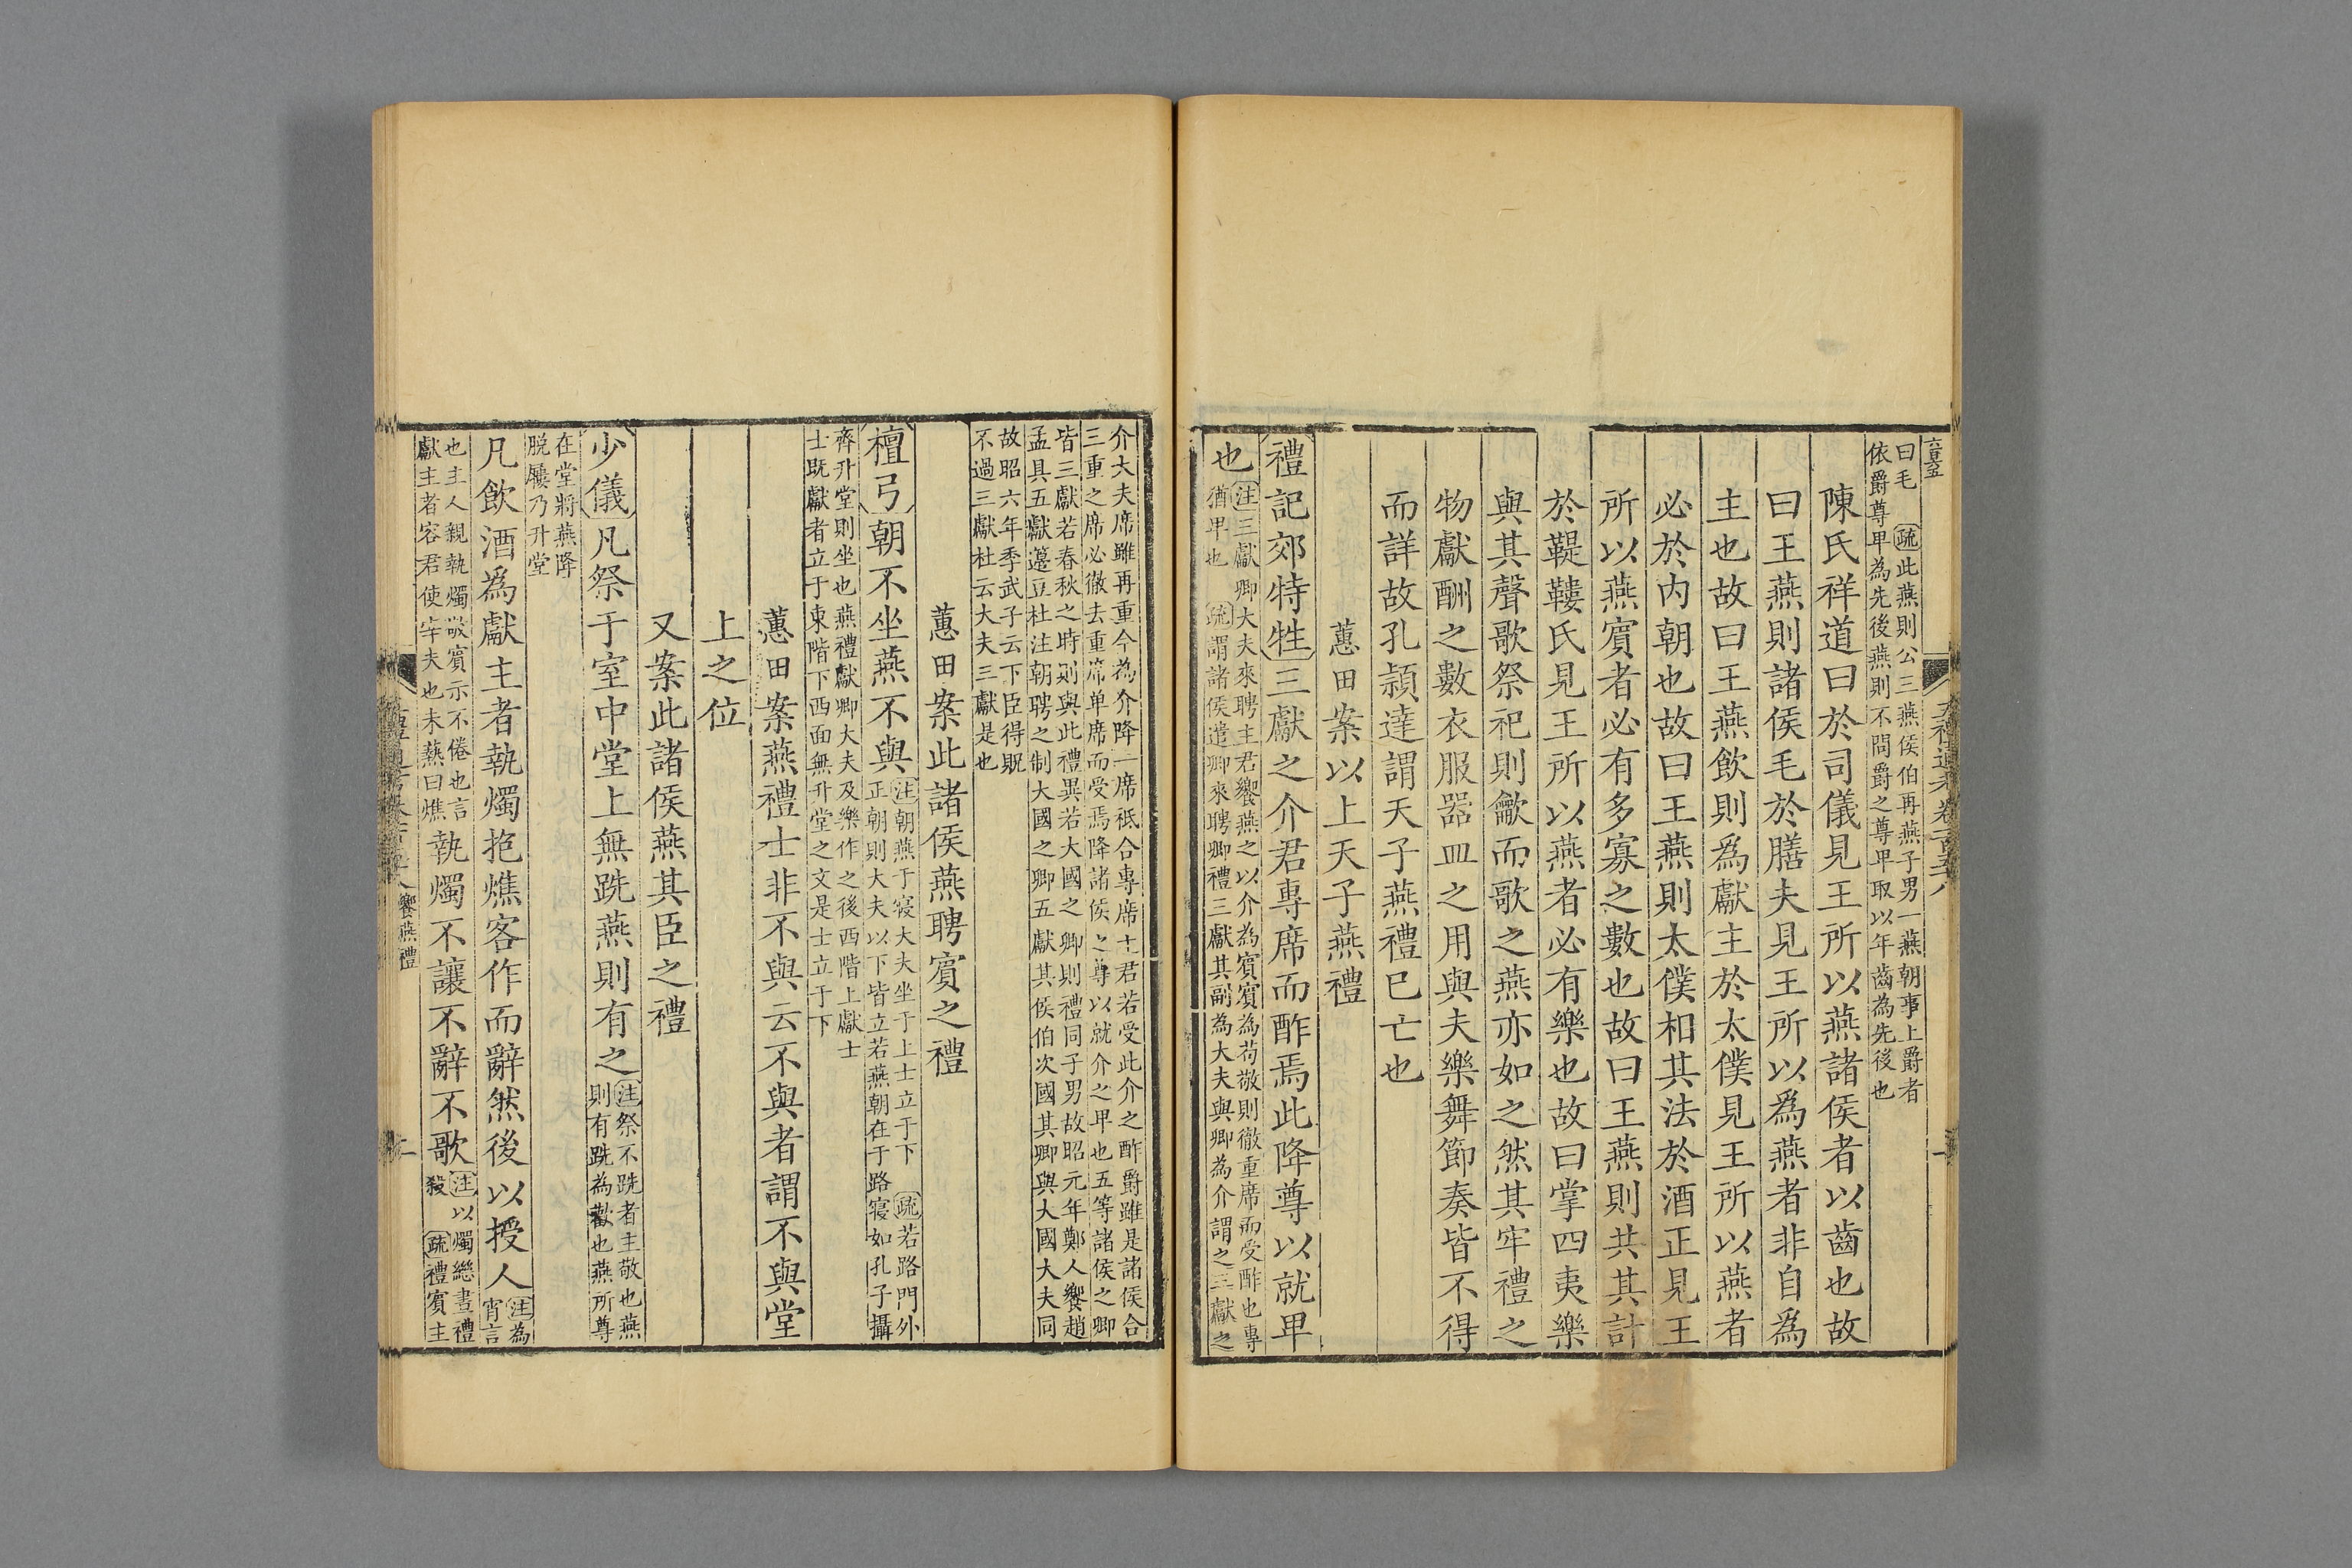 曰毛 疏此燕則公三燕侯伯再燕子男一燕朝事上爵者
依爵尊卑為先後燕則不問爵之尊卑取以年齒為先後也
陳氏祥道曰於司儀見王所以燕諸侯者以齒也故
曰王燕則諸侯毛於膳夫見王所以為燕者非自為
主也故曰王燕飲則為獻主於太僕見王所以燕者
必於內朝也故曰王燕則太僕相其法於酒正見王
所以燕賓者必有多寡之數也故曰王燕則共其計
於鞮鞻氏見王所以燕者必有樂也故曰掌四夷樂
與其聲歌祭祀則龡而歌之燕亦如之然其牢禮之
物獻酬之數衣服器皿之用與夫樂舞節奏皆不得
而詳故孔頴達謂天子燕禮巳亡也
蕙田案以上天子燕禮
禮記郊特牲三獻之介君專席而酢焉此降尊以就卑
也 注三獻卿大夫來聘主君饗燕之以介為賓賓為苟敬則徹重席而受酢也專
猶卑也 疏謂諸侯遣卿來聘卿禮三獻其副為大夫與卿為介謂之三獻之
介大夫席雖再重今為介降一席秪合專席主君若受此介之酢爵雖是諸侯合
三重之席必徹去重席单席而受焉降諸侯之尊以就介之卑也五等諸侯之卿
皆三獻若春秋之時則與此禮異若大國之卿則禮同子男故昭元年鄭人饗趙
孟具五獻籩豆杜注朝聘之制大國之卿五獻其侯伯次國其卿與大國大夫同
故昭六年季武子云下臣得貺
不過三獻杜云大夫三獻是也
蕙田案此諸侯燕聘賓之禮
檀弓朝不坐燕不與 注朝燕于寢大夫坐于上士立于下 疏若路門外
正朝則大夫以下皆立若燕朝在于路寢如孔子攝
齊升堂則坐也燕禮獻卿大夫及樂作之後西階上獻士
士既獻者立于東階下西面無升堂之文是士立于下
蕙田案燕禮士非不與云不與者謂不與堂
上之位
又案此諸侯燕其臣之禮
少儀凡祭于室中堂上無跣燕則有之 注祭不跣者主敬也燕
則有跣為歡也燕所尊
在堂將燕降
脫屨乃升堂
凡飲酒為獻主者執燭抱燋客作而辭然後以授人 注為
宵言
也主人親執燭敬賓示不倦也言
獻主者容君使宰夫也未爇曰燋 執燭不讓不辭不歌 注以燭繼晝禮
殺 疏禮賓主
饗燕禮
二